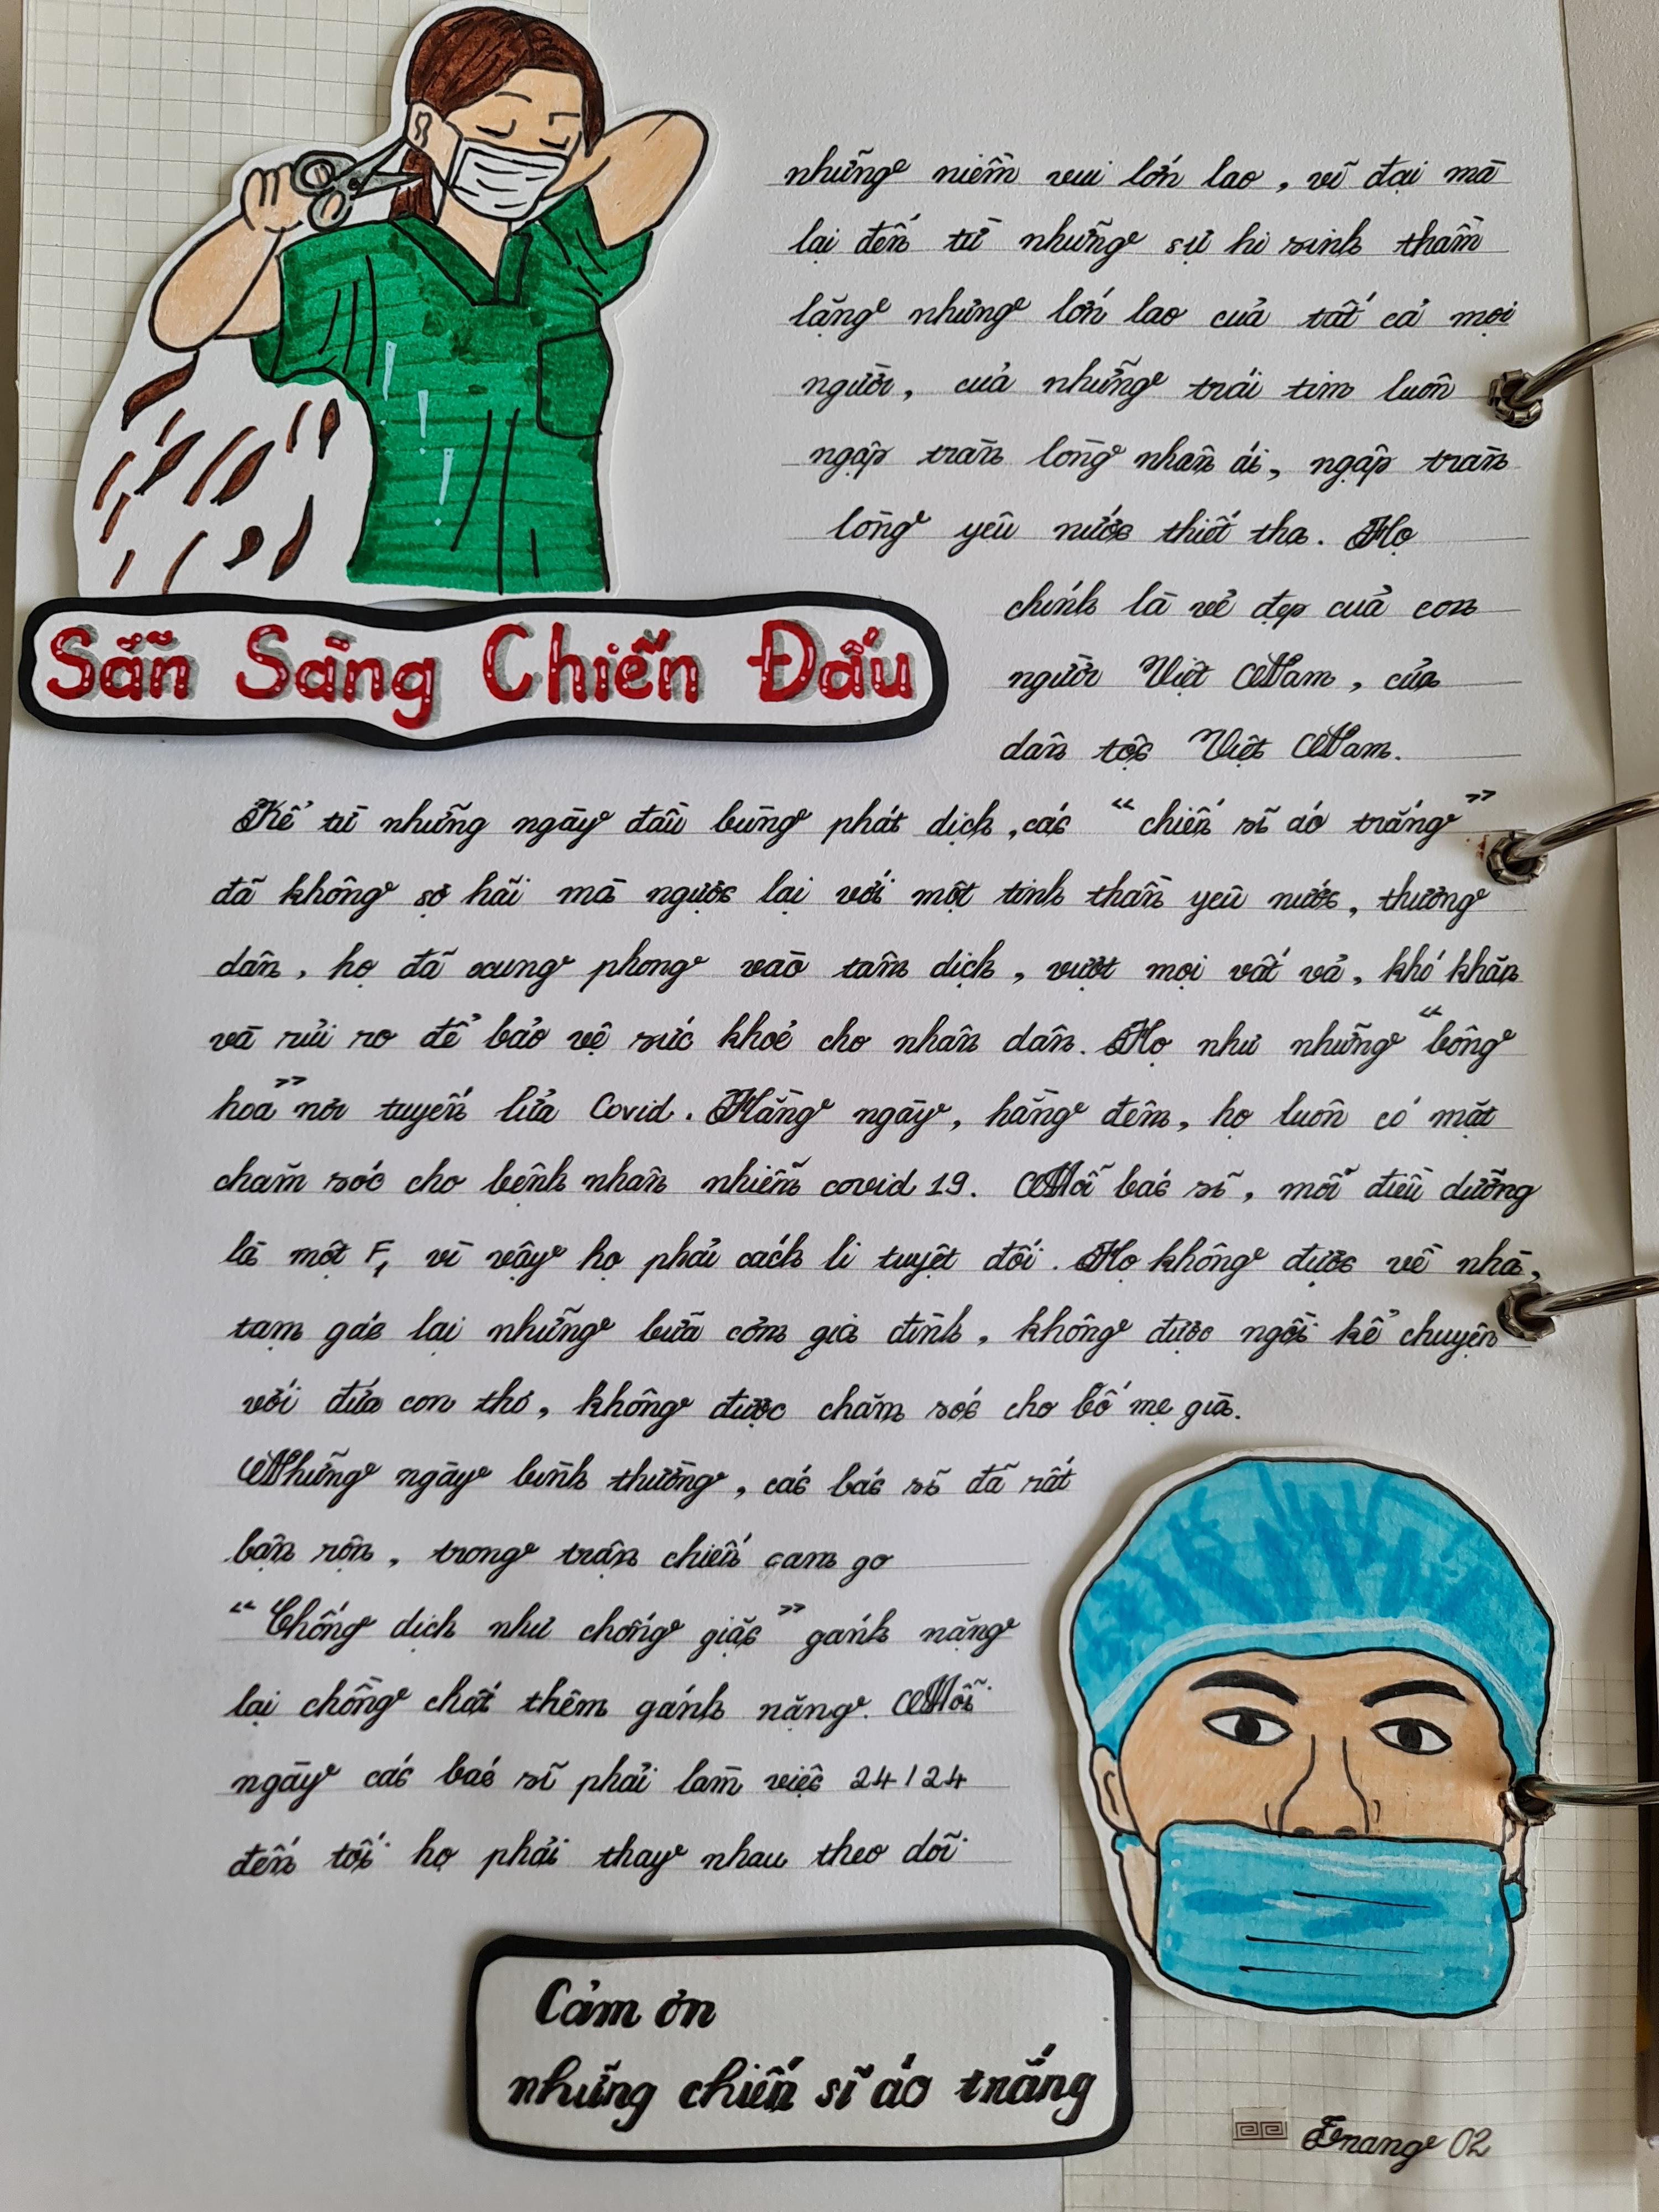 những niềm vui lớn lao, vĩ đại mà
lại đến từ những sự hi sinh thầm
lặng nhưng lớn lao của tất cả mọi
người, của những trái tim luôn
ngập tràn lòng nhân ái, ngập tràn
lòng yêu nước thiết tha. Họ
chính là vẻ đẹp của con
người Việt Nam, của
dân tộc Việt Nam.
Sẵn Sàng Chiến Đấu
Kể từ những ngày đầu bùng phát dịch, các "chiến sĩ áo trắng"
đã không sợ hãi mà ngược lại với một tinh thần yêu nước, thương
dân, họ đã xung phong vào tâm dịch, vượt mọi vất vả, khó khăn
và rủi ro để bảo vệ sức khoẻ cho nhân dân. Họ như những "bông
hoa" nơi tuyến lửa Covid. Hằng ngày, hằng đêm, họ luôn có mặt
chăm sóc cho bệnh nhân nhiễm covid 19. Mỗi bác sĩ, mỗi điều dưỡng
là một F, vì vậy họ phải cách li tuyệt đối. Họ không được về nhà,
tạm gác lại những bữa cơm gia đình, không được ngồi kể chuyện
với đứa con thơ, không được chăm sóc cho bố mẹ già.
Những ngày bình thường, các bác sĩ đã rất
bận rộn, trong trận chiến cam go
"Chống dịch như chống giặc" gánh nặng
lại chồng chất thêm gánh nặng. Mỗi
ngày các bác sĩ phải làm việc 24/24
đến tối họ phải thay nhau theo dõi
Cảm ơn
những chiến sĩ áo trắng
Trang 02